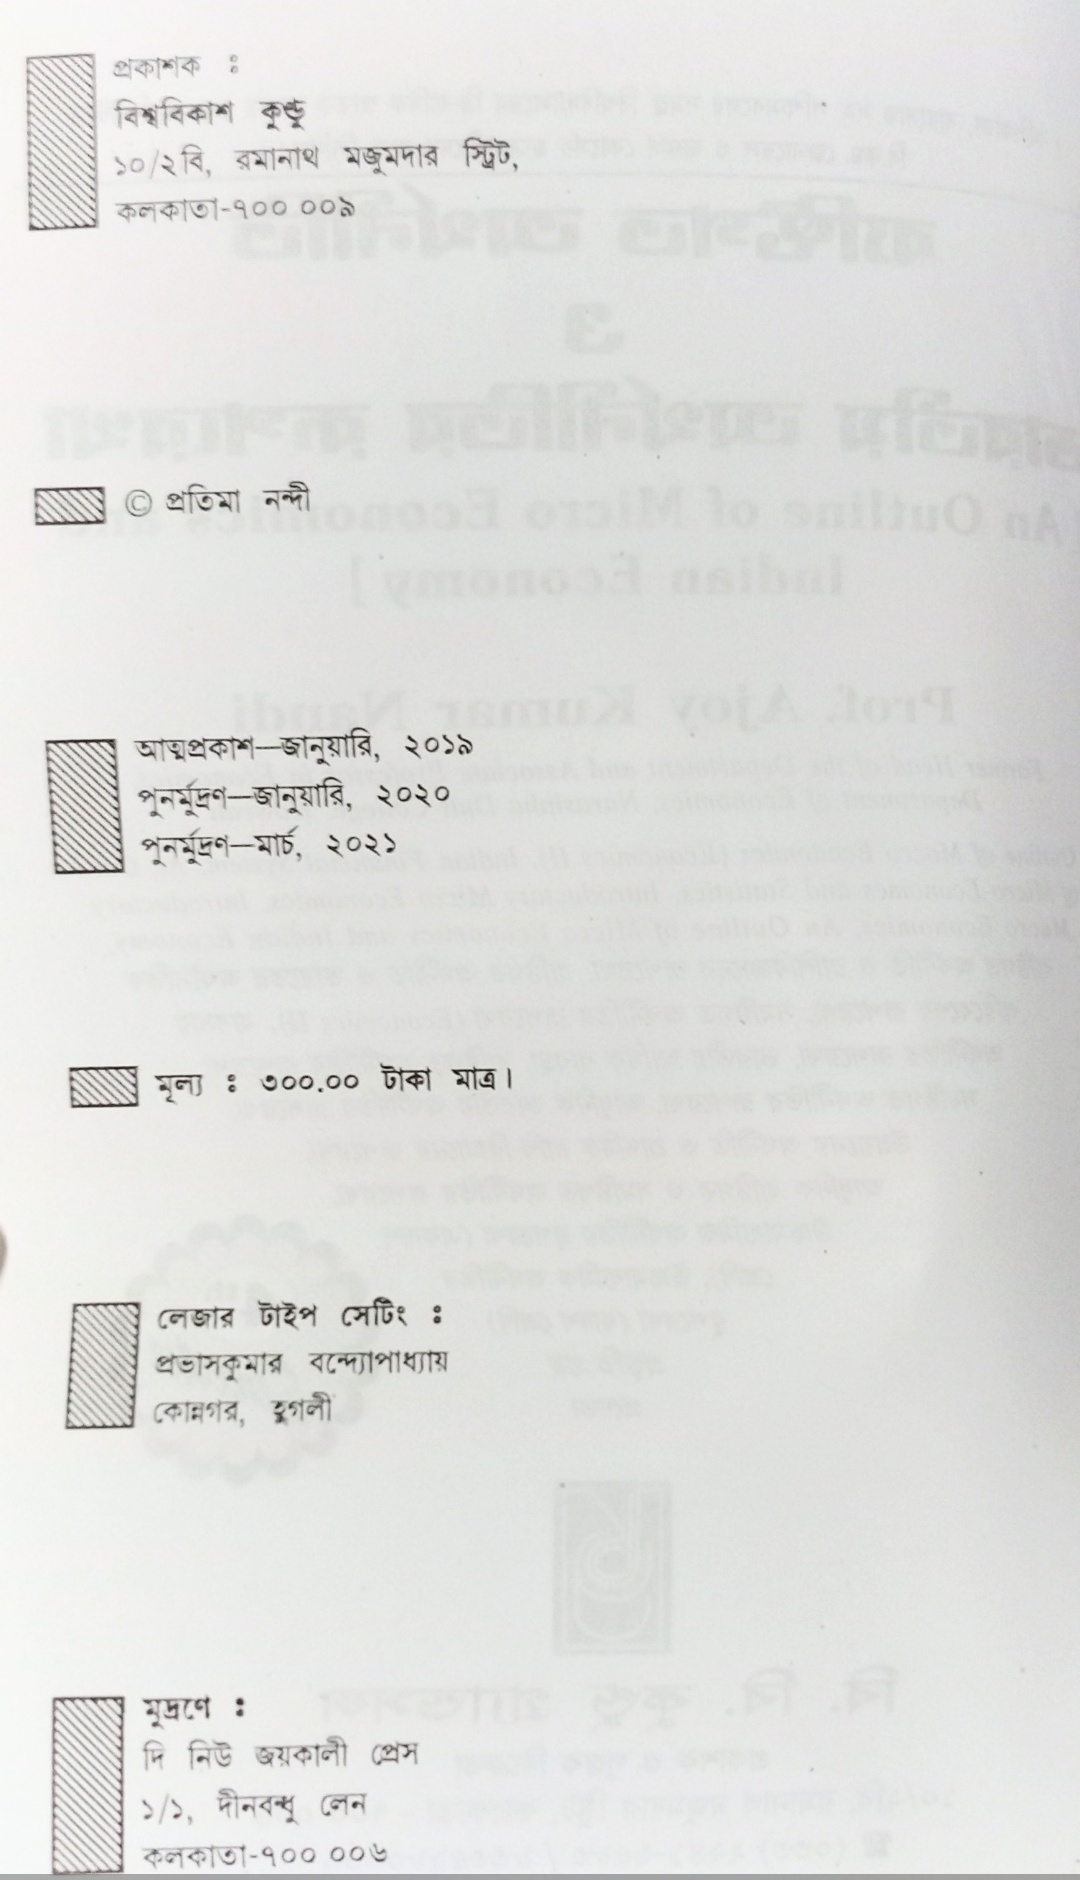 প্রকাশক :
বিশ্ববিকাশ কুণ্ডু
১০/২বি, রমানাথ মজুমদার স্ট্রিট,
কলকাতা-৭০০ ০০৯
© প্রতিমা নন্দী
আত্মপ্রকাশ—জানুয়ারি, ২০১৯
পুনর্মুদ্রণ—জানুয়ারি, ২০২০
পুনর্মুদ্রণ—মার্চ, ২০২১
মূল্য : ৩০০.০০ টাকা মাত্র।
লেজার টাইপ সেটিং :
প্রভাসকুমার বন্দ্যোপাধ্যায়
কোন্নগর, হুগলী
মুদ্রণে :
দি নিউ জয়কালী প্রেস
১/১, দীনবন্ধু লেন
কলকাতা-৭০০ ০০৬